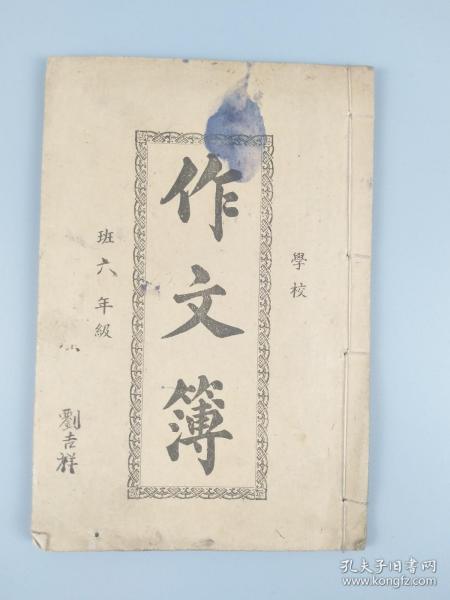 學校
作文簿
班六年級
劉吉祥
孔夫子旧书网
www.kongfz.com